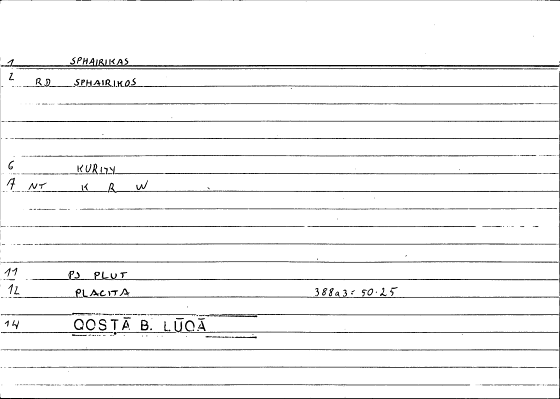 1 SPHAIRIKAS
2 RD SPHAIRIKOS
6 KURIĪY
7 NT K R W
11 PS PLUT
12 PLACITA 388a3 = 50.25
14 QOSṬĀ B. LŪQĀ